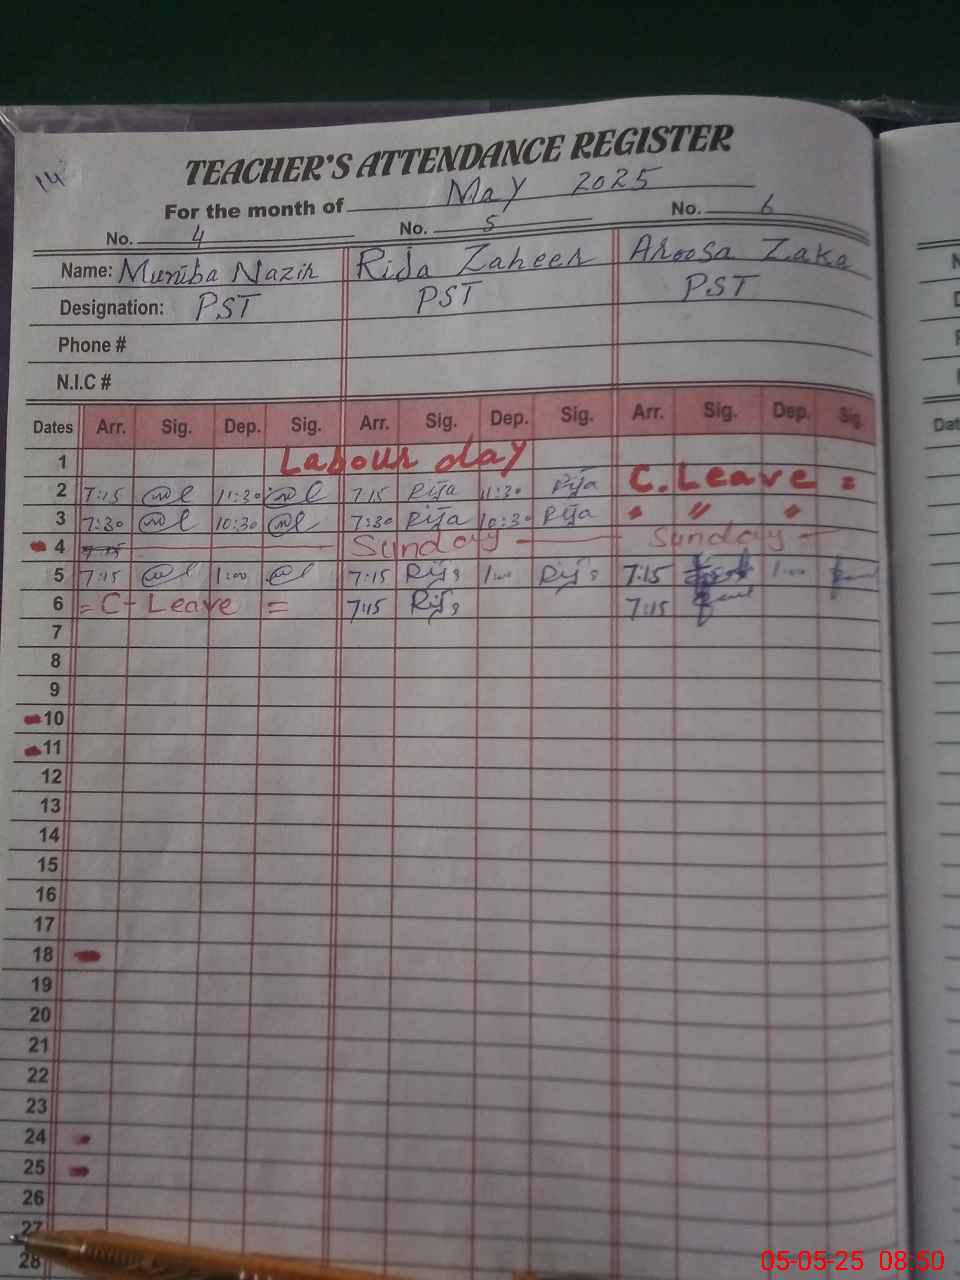 14
TEACHER'S ATTENDANCE REGISTER
For the month of May 2025
No. 4 No. 5 No. 6
Name: Muniba Nazir Rida Zaheer Aroosa Zaka
Designation: PST PST PST
Phone #
N.I.C #
Dates Arr. Sig. Dep. Sig. Arr. Sig. Dep. Sig. Arr. Sig. Dep. Sig.
1 Labour day
2 7:15 11:30 7:15 Rija 11:30 Rija C. Leave =
3 7:30 10:30 7:30 Rija 10:30 Rija " " "
4 Sunday Sunday
5 7:15 1:00 7:15 1:00 7:15 1:00
6 = C- Leave = 7:15 7:15
7
8
9
10
11
12
13
14
15
16
17
18
19
20
21
22
23
24
25
26
27
28
Dat
05-05-25 08:50